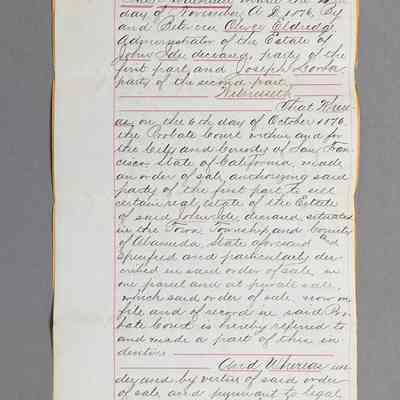 This Indenture made the
day of November A.D. 1876, By
and Between Oliver Eldredge
Administrator of the Estate of
John Ide deceased, party of the
first part and Joseph
party of the second part
Witnesseth
That Where
as on the 6th day of October 1876.
the Probate Court in and for
the City and County of San Fran
cisco State of California made
an order of sale authorizing said
party of the first part, to sell
certain real estate of the Estate
of said John Ide, deceased, situated
in the Town, Township and County
of Alameda, State aforesaid and
specified and particularly des
cribed in said order of sale, in
one parcel and at private sale,
which said order of sale now on
file and of record in said Pro
bate Court is hereby referred to
and made a part of this in
denture.
And Whereas un
der and by virtue of said order
of sale and pursuant to legal